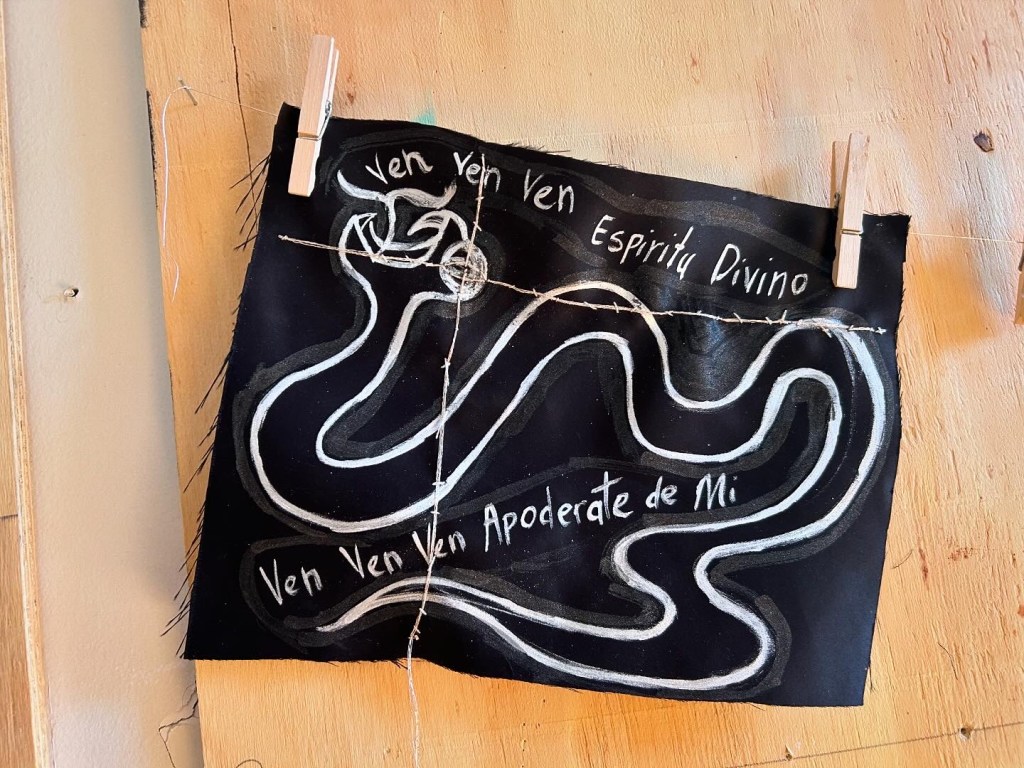 Ven Ven Ven
Espiritu Divino
Ven Ven Ven Apoderate de Mi